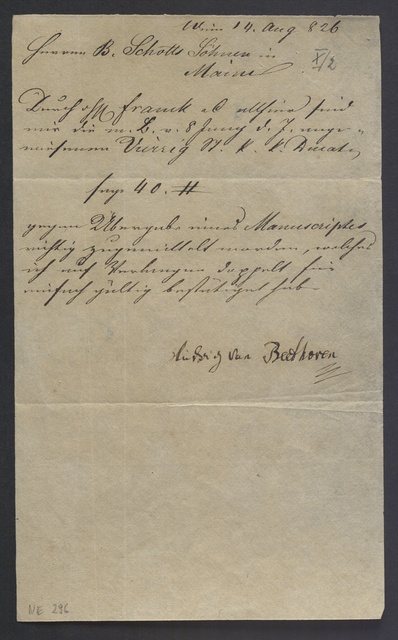 Wien 14. Aug 826
Herren B. Schotts Söhnen in
Mainz
X/2
Durch H Franck & C allhier sind
mir die m. B. v. 8 Juny d. J. ange-
wiesenen Vierzig St. k. k. Ducaten
sage 40. #
gegen Übergabe eines Manuscriptes
richtig zugemittelt worden, welches
ich auf Verlangen doppelt für
einfach gültig bestätiget habe
Ludwig van Beethoven
NE 296